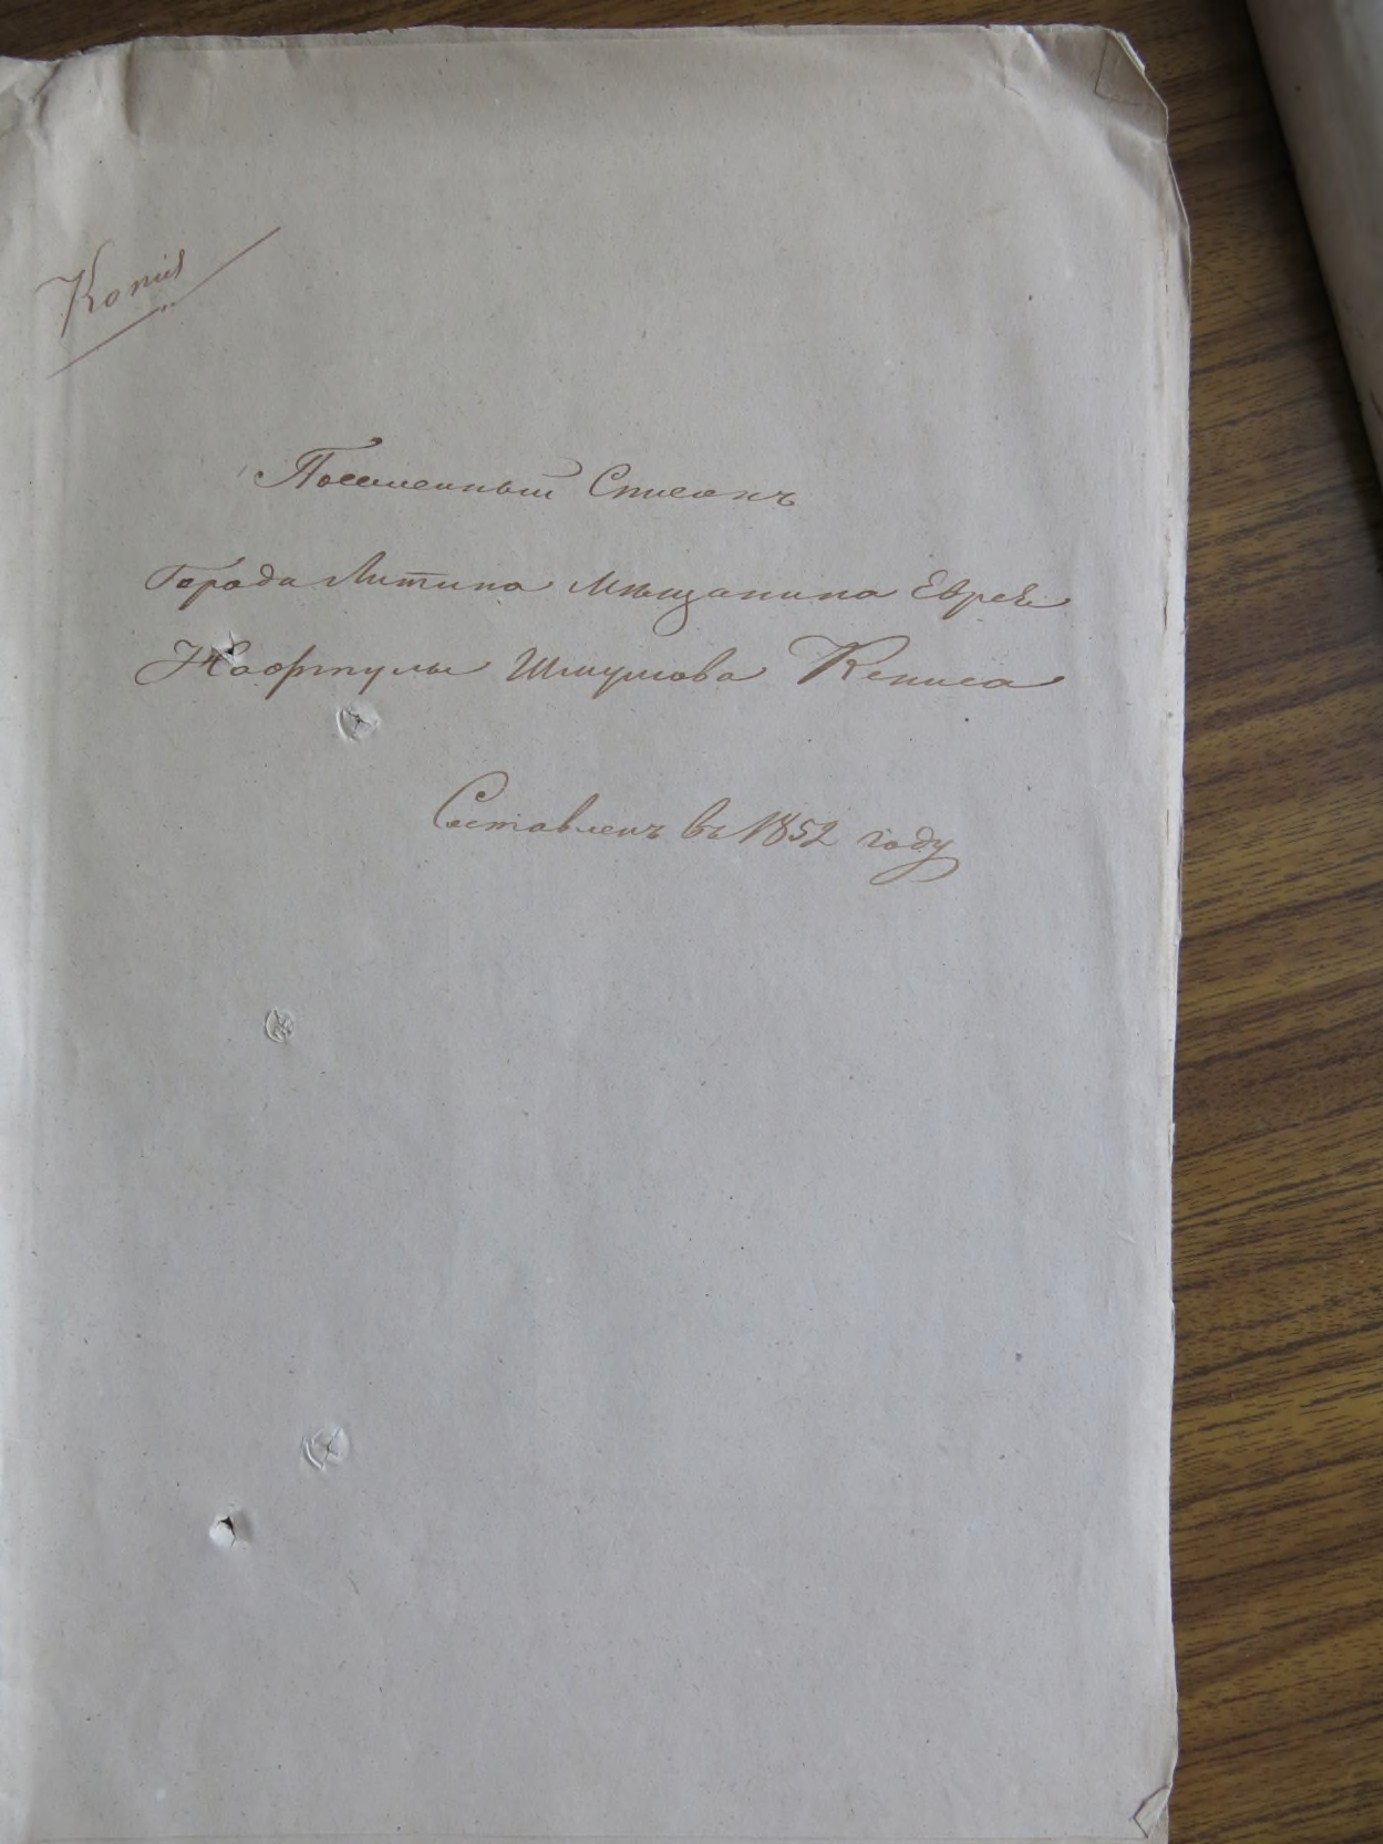 Копія
Посемейный Списокъ
Города Литина Мѣщанина Еврея
Нафтулы Шмулова Кениса
Составленъ въ 1852 году